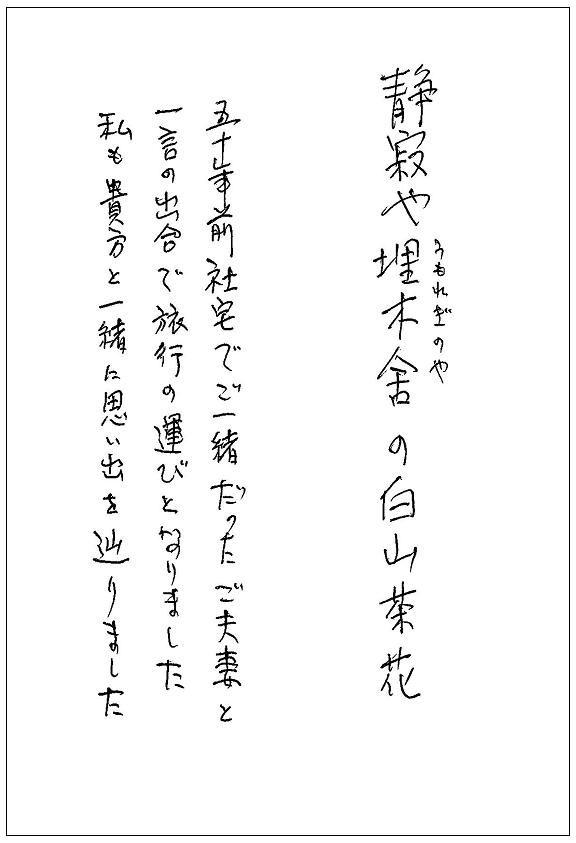 静寂や埋木舎の白山茶花
うもれぎのや
五十年前社宅でご一緒だったご夫妻と
一言の出合で旅行の運びとなりました
私も貴方と一緒に思い出を辿りました